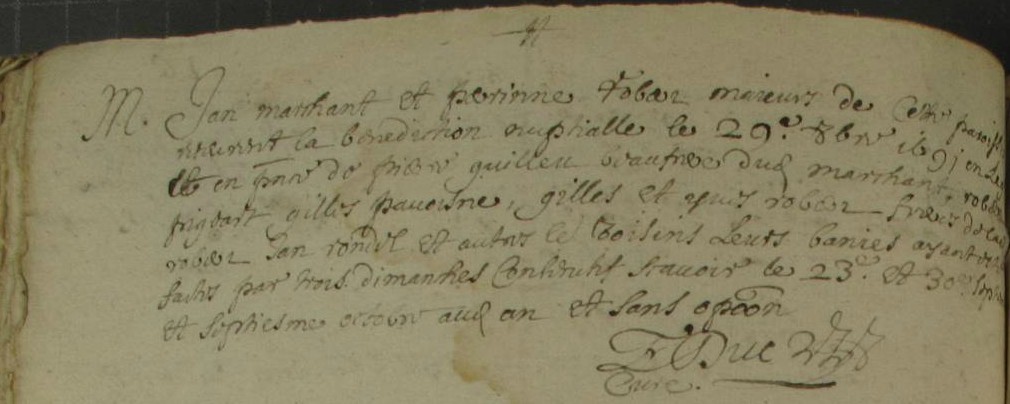 M. Jan marchant et perrinne rober maieurs de Cette paroisse
recurent la benediction nuptialle le 29e 8bre
et en pnce de pierre guilleu beaufrere dud marchant robert
frigeart gilles pavoisne, gilles et rober freres de lad
rober Jan rondel et autres voisins Leurs banies ayant
faites par trois dimanches Consecutifs scavoir le 23e et 30e
et septiesme octobre aud an et sans opoon
F Duc
Curé.